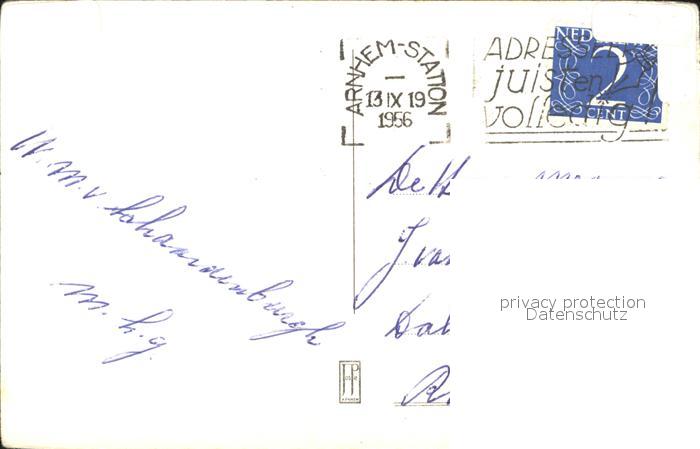 ARNHEM-STATION
13 IX 19
1956
ADRESSEER
juist en
volledig!
NED
2
CENT
W. M. v. Schaardenburgh
m. h. g.
De H
J van
privacy protection
Datenschutz
JP